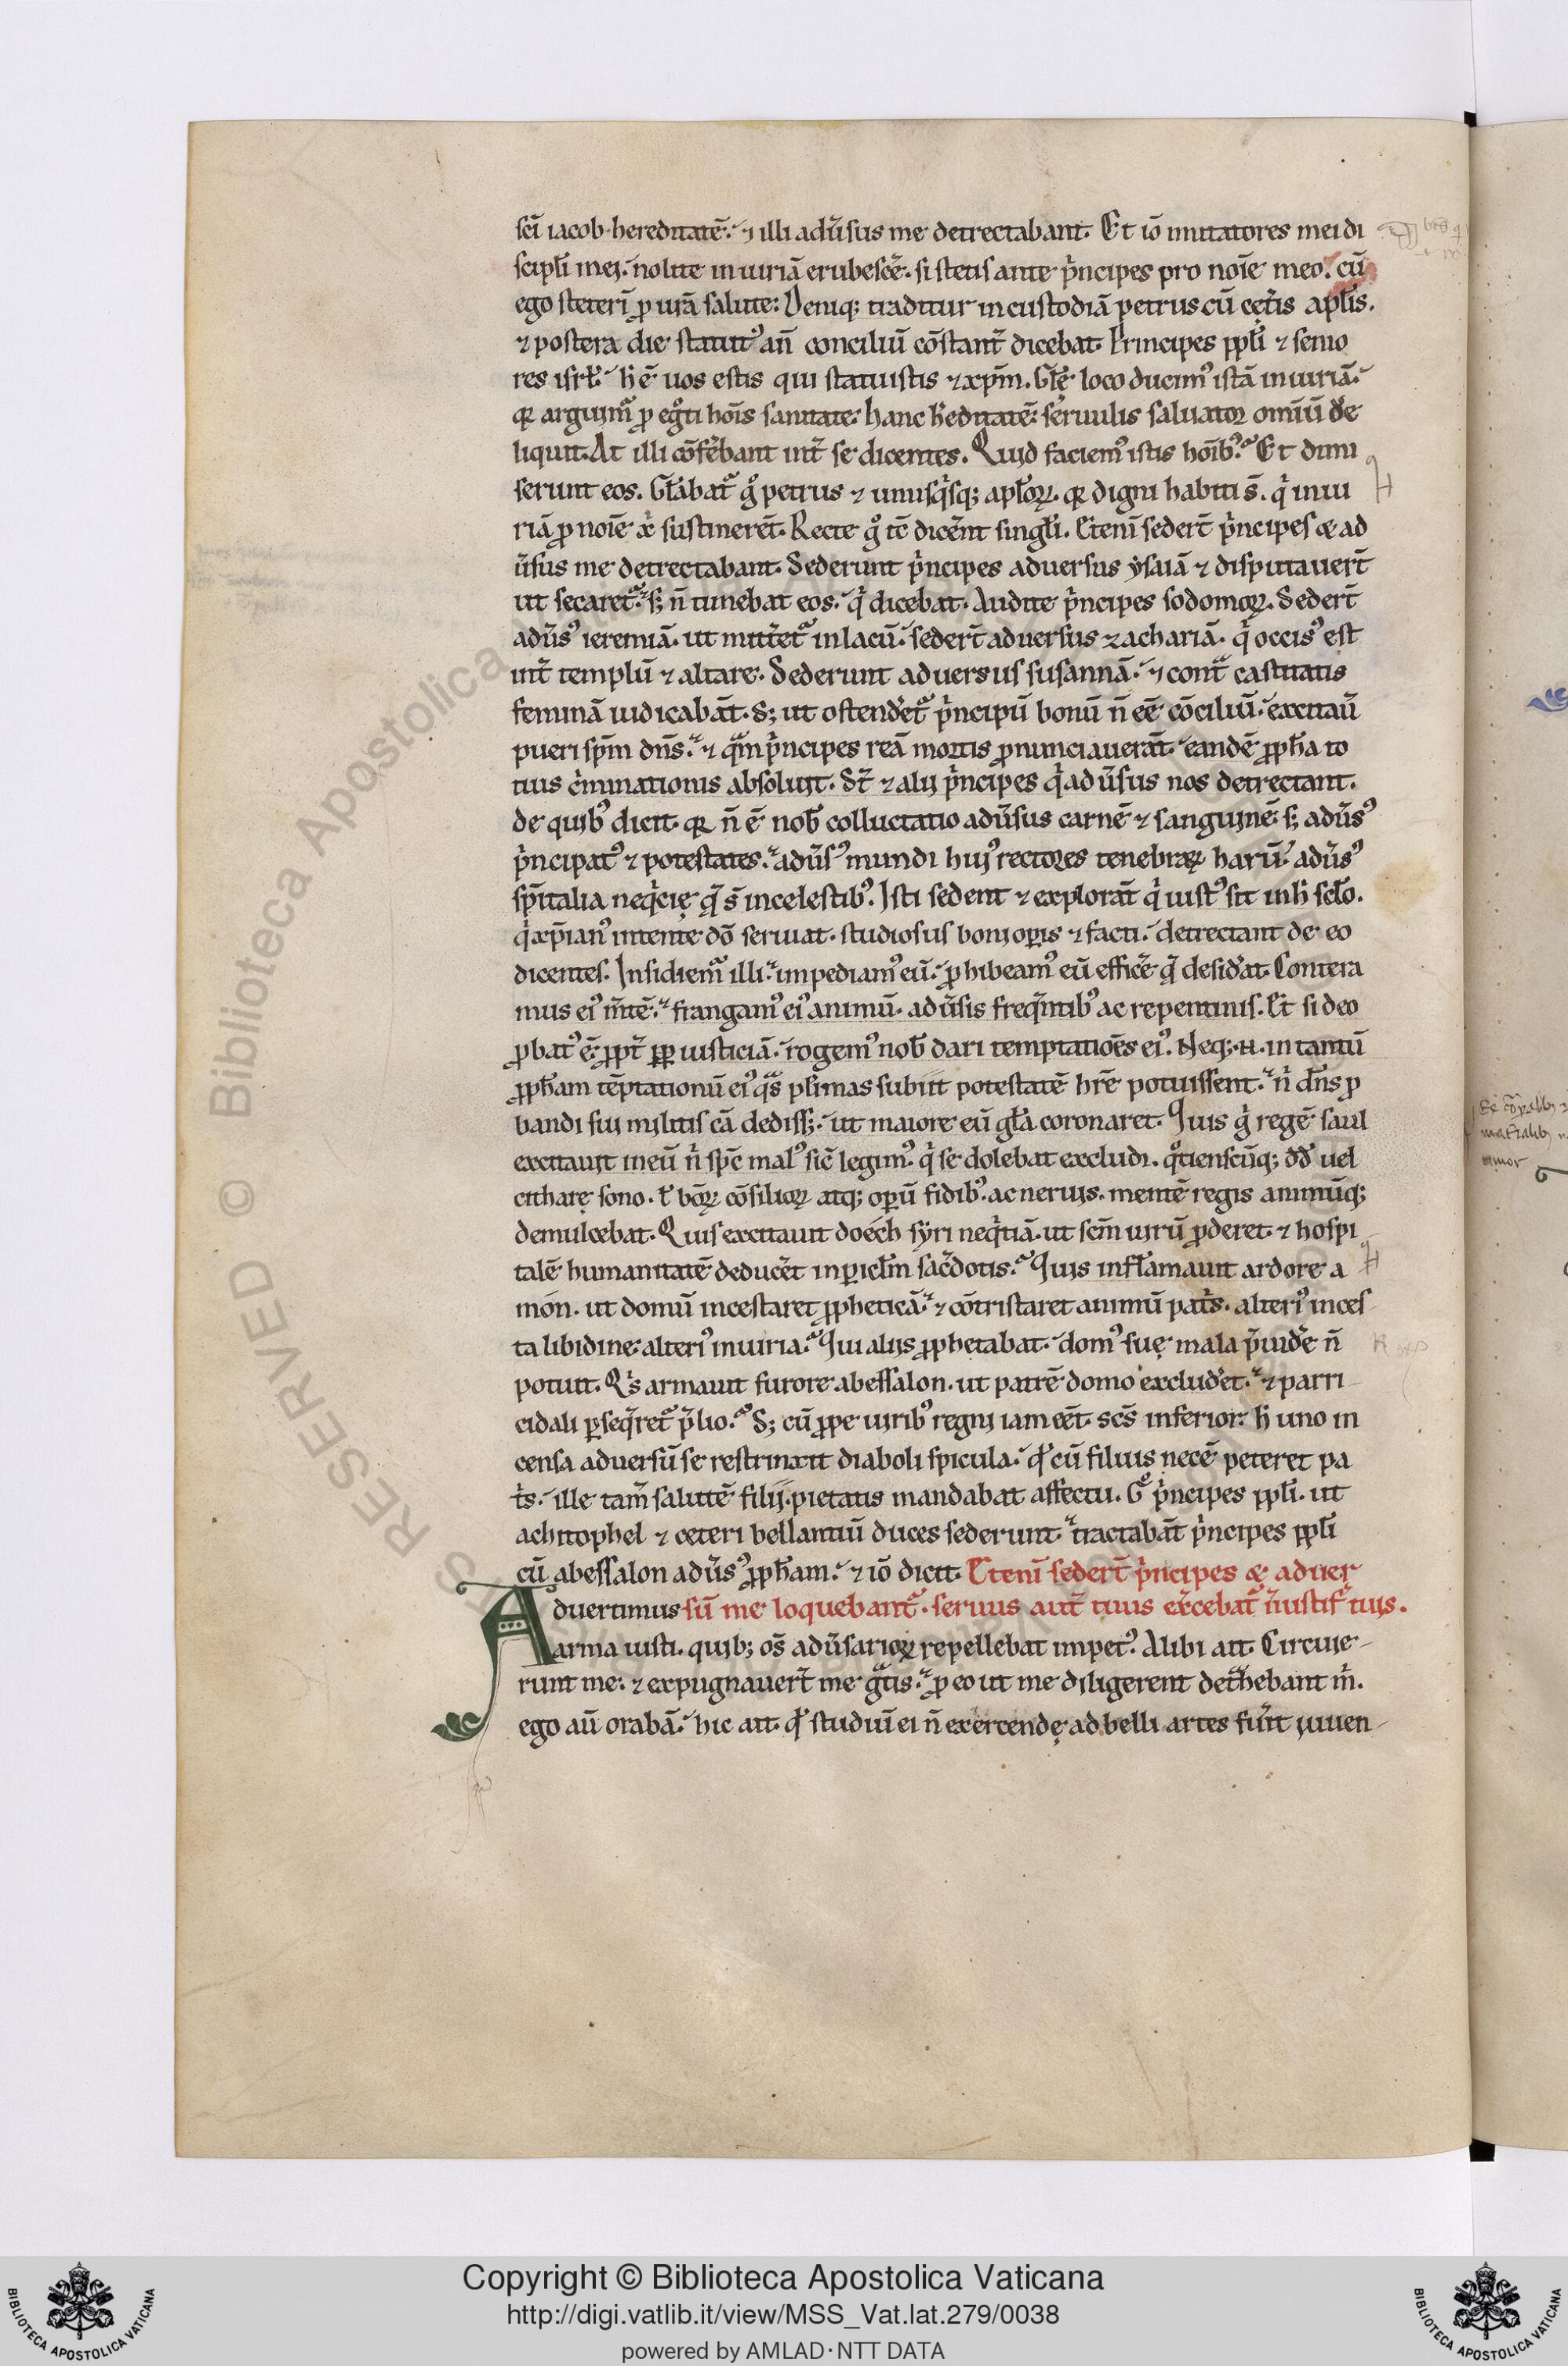 scī iacob hereditatē. ⁊ illi adūsus me detrectabant. Et iō imitatores mei di
scipl̄i mei. nolite iniuriā erubescē. si stetis ante p̄ncipes pro noīe meo. cū
ego steterī ꝓ ur̄ā salute. Deniq; traditur in custodiā petrus cū cet̄is apl̄is.
⁊ postera die statut᾽ an̄ conciliū cōstant̄ dicebat. Principes ppl̄i ⁊ senio
res isrl̄. h̄ ē uos estis qui statuistis ⁊ xp̄m. Gl̄e loco ducim᾽ istā iniuriā.
qr arguim̄ ꝓ eg̊ti hoīs sanitate. hanc h̄editatē seruulis saluator omīū de
liquit. At illi cōferebant int̄ se dicentes. Quid faciem᾽ istis hoīb᾽. Et dimi
serunt eos. Gl̄abat᾽ g̊ petrus ⁊ unusq̇sq; apl̄oꝝ. qr digni habiti s̄. q̇ iniu
riā ꝓ noīe xp̄i sustinerēt. Recte g̊ tē dicēnt singl̄i. Etenī sedert̄ p̄ncipes ⁊ ad
ūsus me detrectabant. Sederunt p̄ncipes adversus ysaiā ⁊ disputauert̄
ut secaret᾽. s; n̄ timebat eos. q̇ dicebat. Audite p̄ncipes sodomoꝝ. Sedert̄
adūs᾽ ieremiā. ut mittēt᾽ in lacū. sedert̄ adversus zachariā. q̇ occis᾽ est
int̄ templū ⁊ altare. Sederunt aduersus susannā. ⁊ cont̄ castitatis
feminā iudicabāt. S; ut ostendēt᾽ p̄ncipū bonū n̄ eē cōciliū. excitaū
pueri sp̄m dn̄s. ⁊ qām p̄ncipes reā mortis ꝓnunciauerāt. eandē ꝓph̄a to
tius c̄minationis absoluit. St̄ ⁊ alij p̄ncipes q̇ adūsus nos detrectant.
de quib᾽ dicit. qr n̄ ē nob̄ colluctatio adūsus carnē ⁊ sanguinē. s; adūs᾽
p̄ncipat᾽ ⁊ potestates. adūs᾽ mundi hui᾽ rectores tenebraꝝ harū. adūs᾽
sp̄italia neq̇cię q̄ s̄ in celestib᾽. Isti sedent ⁊ explorāt q̇ iust᾽ sit in h̄ scl̄o.
q̇ xp̄ian᾽ intente dō seruiat. studiosus boni oꝑis ⁊ facti. detrectant de eo
dicentes. Insidiem᾽ illi. impediam᾽ eū. ꝓhibeam᾽ eū efficē q̄ desid̄at. Contera
mus ei᾽ m̄tē. frangam᾽ ei᾽ animū. adūsis freq̄ntib᾽ ac repentinis. Et si deo
ꝓbat᾽ ē. ꝓpt̄ ꝓp iusticiā. rogem᾽ nob̄ dari temptatiōes ei᾽. Neq; .n. in tantū
ꝓph̄am tēptationū ei᾽ q̄s pl̄imas subiit potestatē hr̄e potuissent. n̄ dn̄s ꝓ
bandi sui militis cā dediss;. ut maiore eū gl̄a coronaret. Quis g̊ regē saul
excitauit in eū n̄ sp̄c mal᾽ sic̄ legim᾽. q̇ se dolebat excludi. q̊tienscūq; dd̄ uel
citharę sono. l̄ bōꝝ cōsilioꝝ atq; oꝑū fidib᾽. ac neruis. mentē regis animūq;
demulcebat. Quis excitauit doech syri neq̇tiā. ut scm̄ uirū ꝓderet. ⁊ hospi
talē humanitatē deducēt in ꝑicl̄m sac̄dotis. Quis infl̄amauit ardore a
mon. ut domū incestaret ꝓpheticā. ⁊ cōtristaret animū pat̄s. alteri᾽ inces
ta libidine. alteri᾽ iniuria. Qui aliis ꝓphetabat. dom᾽ suę mala p̄uidēe n̄
potuit. Q̇s armauit furore abessalon. ut patrē domo excludēt. ⁊ parri
cidali ꝑseq̄ret᾽ p̄lio. S; cū ꝓpe uirib᾽ regni iam eēt. scs̄ inferior. h̄ uno in
censa aduersū se restrinxit diaboli spicula. q̊ cū filius necē peteret pa
t̄s. ille tam̄ salutē filii. pietatis mandabat affectu. G̊ p̄ncipes ppl̄i. ut
achitophel ⁊ ceteri bellantiū duces sederunt. tractabāt p̄ncipes ppl̄i
cū abessalon adūs᾽ ꝓph̄am. ⁊ iō dicit. Etenī sedert̄ p̄ncipes ⁊ aduer
Aduertimus sū me loquebant᾽. seruus aut̄ tuus exc̄ebat᾽ ī iustif̄ tuis.
arma iusti. quib; os̄ adūsarioꝝ repellebat impet᾽. Alibi ait. Circuie
runt me. ⁊ expugnauert̄ me gātis. ꝓ eo ut me diligerent det̄hebant m̄.
ego aū orabā. hic ait. q̊ studiū ei n̄ exercendę ad belli artes fuīt iuuen
Copyright © Biblioteca Apostolica Vaticana
http://digi.vatlib.it/view/MSS_Vat.lat.279/0038
powered by AMLAD·NTT DATA